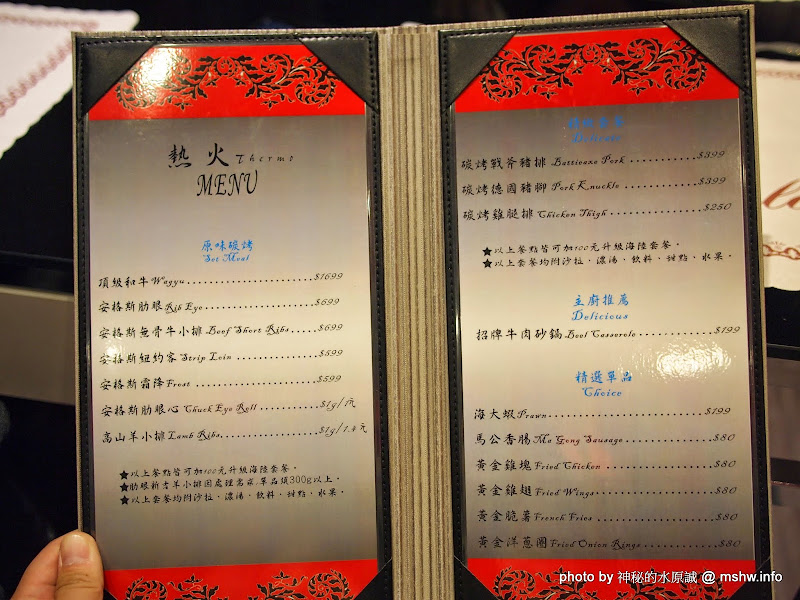 熱火 Thermo
MENU
原味碳烤
Set Meal
頂級和牛 Wagyu ........................ $1699
安格斯肋眼 Rib Eye ..................... $699
安格斯無骨牛小排 Beef Short Ribs ...... $699
安格斯紐約客 Strip Loin ................ $599
安格斯霜降 Frost ....................... $599
安格斯肋眼心 Chuck Eye Roll ............ $1g/1元
高山羊小排 Lamb Ribs .................. $1g/1.4元
★以上餐點皆可加100元升級海陸套餐。
★肋眼新香羊小排因處理需求,單品須300g以上。
★以上套餐均附沙拉、濃湯、飲料、甜點、水果。
Delicate
碳烤戰斧豬排 Battleaxe Pork ........... $399
碳烤德國豬腳 Pork Knuckle ............. $399
碳烤雞腿排 Chicken Thigh .............. $250
★以上餐點皆可加100元升級海陸套餐。
★以上套餐均附沙拉、濃湯、飲料、甜點、水果。
主廚推薦
Delicious
招牌牛肉砂鍋 Beef Casserole ........... $199
精選單品
Choice
海大蝦 Prawn .......................... $199
馬公香腸 Ma Gong Sausage .............. $80
黃金雞塊 Fried Chicken ................ $80
黃金雞翅 Fried Wings .................. $80
黃金脆薯 French Fries ................. $80
黃金洋蔥圈 Fried Onion Rings .......... $80
photo by 神秘的水原誠 @ mshw.info